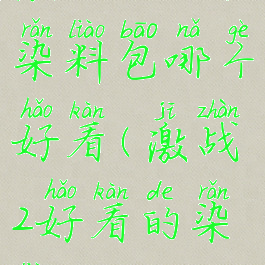 rǎn liào bāo nǎ gè
染料包哪个
hǎo kàn jī zhàn
好看(激战
hǎo kàn de rǎn
2好看的染